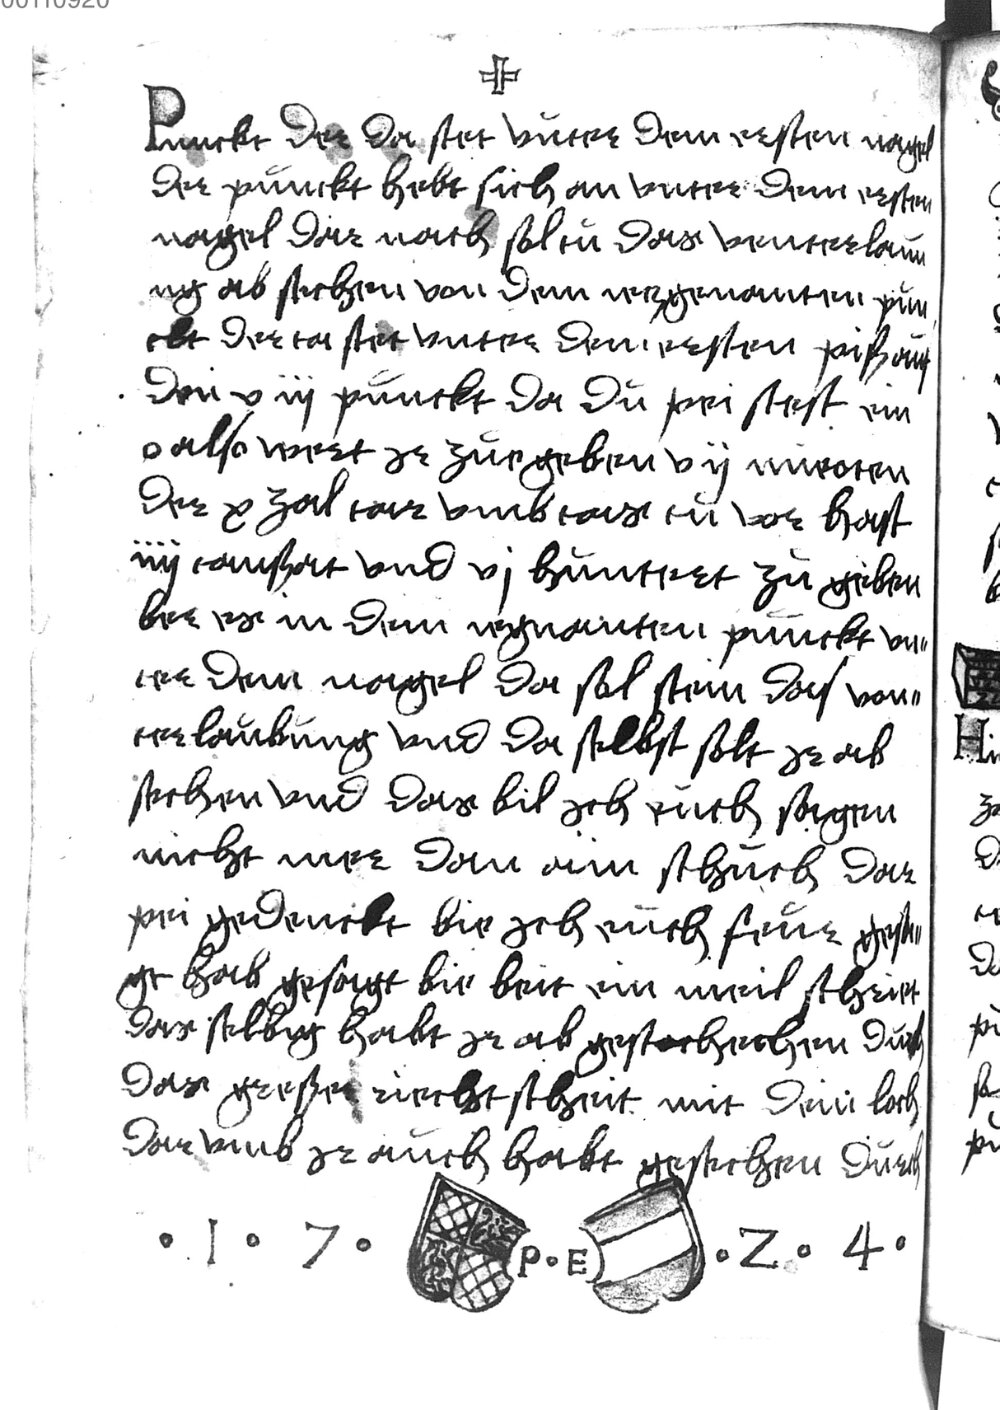 00110920
Punckt der da stet unter dem ersten nagel
der punckt hebt sich an unter dem ersten
nagel dar nach soltu das unterlauu
ng ab stechen von dem ergenanten pun
ckt der ta stet unter dem ersten piß auf
den v iij punckt da du pei stest ein
o also wert jr zu geben v ij
der x zal tar umb tas tu vor hast
iiij taußat und vj huntert zu geben
ber es in dem egnanten punckt un„
ter dem nagel da sol stein das von„
terlaubung und da selbst solt jr ab
stechen und das bil jch euch sagen
nicht mer dan ain schuch dar
pei gedenckt bie jch euch feur gesa„
gt hab gesagt bie beit ein meil scheit
das selbig habt jr ab gestochechen durch
das greser riecht scheit mit dem loch
dar umb jr auch habt gestechen durch
• 1 • 7 • P • E • 2 • 4 •